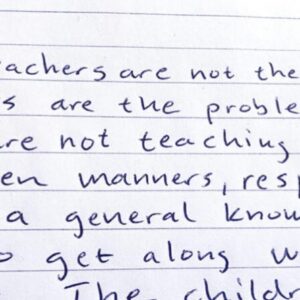 eachers are not the
s are the proble
re not teaching
en manners, resp
a general know
o get along w
The childr